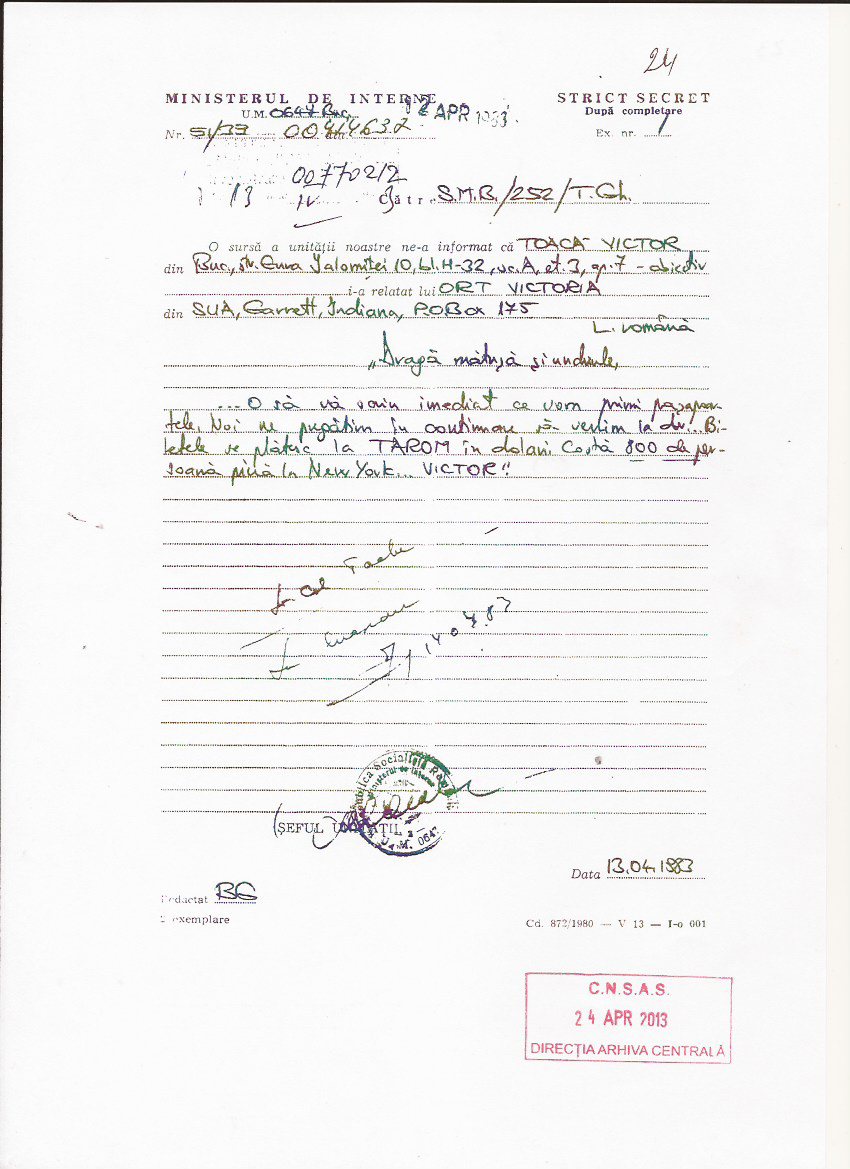 24
MINISTERUL DE INTERNE
12 APR 1983
STRICT SECRET
U.M. 0647 Buc.
După completare
Nr. S1/33 - 00414632
Ex. nr. 1
007702/2
13
IV
Către S.M.B./252/T.Gh.
O sursă a unității noastre ne-a informat că TOACĂ VICTOR
din Buc., str. Gura Ialomiței 10, bl. H-32, sc. A, et. 3, ap. 7 - obiectiv
i-a relatat lui ORT VICTORIA
din SUA, Garrett, Indiana, P.O.Box 175
L. română
„Dragă mătușă și unchiule,
...O să vă scriu imediat ce vom primi pașapoar-
tele. Noi ne pregătim în continuare să venim la dv... Bi-
letele se plătesc la TAROM în dolari. Costă 800 de per-
soană pînă la New York... VICTOR"
Republica Socialistă Ro
Ministerul de Interne
U.M. 0647
ȘEFUL UNITĂȚII
Data 13.04.1983
Redactat BG
2 exemplare
Cd. 872/1980 — V 13 — I-o 001
C.N.S.A.S.
24 APR 2013
DIRECȚIA ARHIVA CENTRALĂ